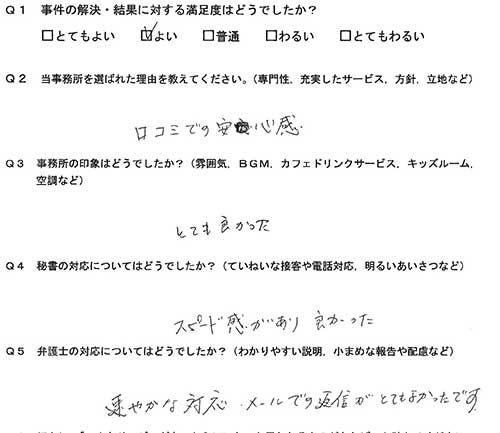 Q1 事件の解決・結果に対する満足度はどうでしたか？
□とてもよい ☑よい □普通 □わるい □とてもわるい
Q2 当事務所を選ばれた理由を教えてください。（専門性，充実したサービス，方針，立地など）
口コミでの安心感
Q3 事務所の印象はどうでしたか？（雰囲気，ＢＧＭ，カフェドリンクサービス，キッズルーム，
空調など）
とても良かった
Q4 秘書の対応についてはどうでしたか？（ていねいな接客や電話対応，明るいあいさつなど）
スピード感があり良かった
Q5 弁護士の対応についてはどうでしたか？（わかりやすい説明，小まめな報告や配慮など）
速やかな対応、メールでの返信がとてもよかったです。